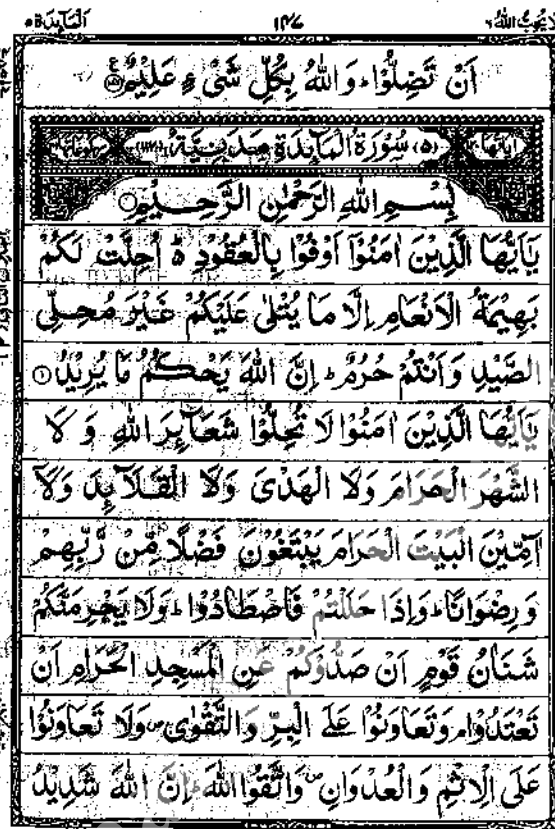 لا يحب الله ٦
١٤٧
المآئدة ٥
اَنْ تَضِلُّوْا ؕ وَاللّٰهُ بِكُلِّ شَیْءٍ عَلِيْمٌ
اٰيَاتُهَا (٥) سُوْرَةُ الْمَآئِدَةِ مَدَنِيَّةٌ
بِسْمِ اللّٰهِ الرَّحْمٰنِ الرَّحِيْمِ ○
يٰۤاَيُّهَا الَّذِيْنَ اٰمَنُوْۤا اَوْفُوْا بِالْعُقُوْدِ ؕ اُحِلَّتْ لَكُمْ
بَهِيْمَةُ الْاَنْعَامِ اِلَّا مَا يُتْلٰى عَلَيْكُمْ غَيْرَ مُحِلِّى
الصَّيْدِ وَاَنْتُمْ حُرُمٌ ؕ اِنَّ اللّٰهَ يَحْكُمُ مَا يُرِيْدُ ①
يٰۤاَيُّهَا الَّذِيْنَ اٰمَنُوْا لَا تُحِلُّوْا شَعَآئِرَ اللّٰهِ وَ لَا
الشَّهْرَ الْحَرَامَ وَلَا الْهَدْىَ وَلَا الْقَلَآئِدَ وَلَاۤ
آٰمِّيْنَ الْبَيْتَ الْحَرَامَ يَبْتَغُوْنَ فَضْلًا مِّنْ رَّبِّهِمْ
وَ رِضْوَانًا ؕ وَاِذَا حَلَلْتُمْ فَاصْطَادُوْا ؕ وَلَا يَجْرِمَنَّكُمْ
شَنَاٰنُ قَوْمٍ اَنْ صَدُّوْكُمْ عَنِ الْمَسْجِدِ الْحَرَامِ اَنْ
تَعْتَدُوْا ۘ وَتَعَاوَنُوْا عَلَى الْبِرِّ وَالتَّقْوٰى ۪ وَلَا تَعَاوَنُوْا
عَلَى الْاِثْمِ وَالْعُدْوَانِ ۪ وَاتَّقُوا اللّٰهَ ؕ اِنَّ اللّٰهَ شَدِيْدُ